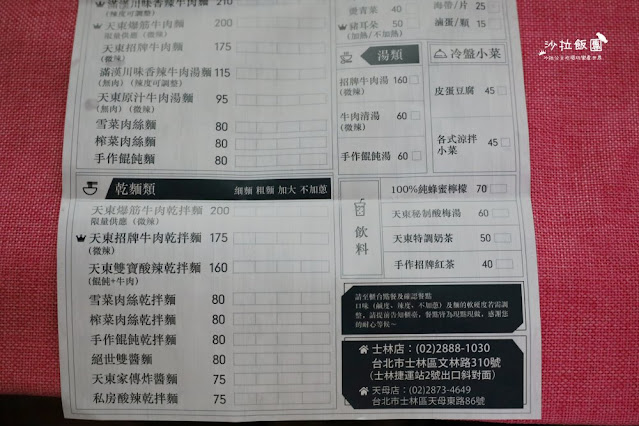 滿漢川味香辣牛肉麵 210
(辣度可調整)
天東爆筋牛肉麵 200
限量供應 (微辣)
天東招牌牛肉麵 175
(微辣)
滿漢川味香辣牛肉湯麵 115
(無肉) (辣度可調整)
天東原汁牛肉湯麵 95
(無肉) (微辣)
雪菜肉絲麵 80
榨菜肉絲麵 80
手作餛飩麵 80
乾麵類 細麵 粗麵 加大 不加蔥
天東爆筋牛肉乾拌麵 200
限量供應 (微辣)
天東招牌牛肉乾拌麵 175
(微辣)
天東雙寶酸辣乾拌麵 160
(餛飩+牛肉)
雪菜肉絲乾拌麵 80
榨菜肉絲乾拌麵 80
手作餛飩乾拌麵 80
絕世雙醬麵 80
天東家傳炸醬麵 75
私房酸辣乾拌麵 75
燙青菜 40
豬耳朵 50
(加熱/不加熱)
海帶/片 25
滷蛋/顆 15
湯類
招牌牛肉湯 160
(微辣)
牛肉清湯 60
(微辣)
手作餛飩湯 60
冷盤小菜
皮蛋豆腐 45
各式涼拌小菜 45
飲料
100%純蜂蜜檸檬 70
天東秘制酸梅湯 60
天東特調奶茶 50
手作招牌紅茶 40
請至櫃台點餐及確認餐點
口味(鹹度、辣度、不加蔥)及麵的軟硬度若需調
整，請提前告知櫃臺，餐點皆為現點現做，感謝您
的耐心等候~
士林店：(02)2888-1030
台北市士林區文林路310號
(士林捷運站2號出口斜對面)
天母店：(02)2873-4649
台北市士林區天母東路86號
沙拉飯團